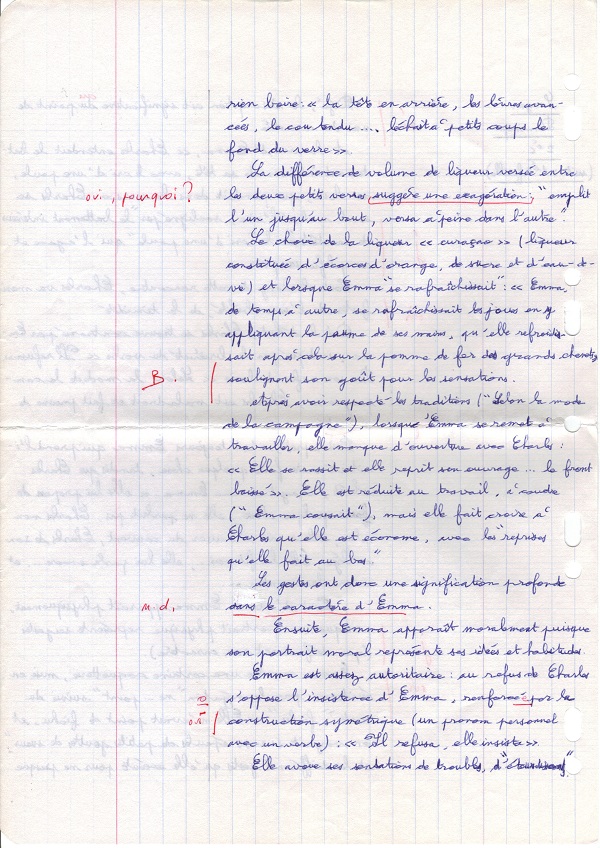 rien boire : « la tête en arrière, les lèvres avan-
cées, le cou tendu .... léchait à petits coups le
fond du verre ».
La différence de volume de liqueur versée entre
oui, pourquoi ? les deux petits verres suggère une exagération : " emplit
l'un jusqu'au bout, versa à peine dans l'autre ".
Le choix de la liqueur « curaçao » (liqueur
constituée d'écorces d'orange, de sucre et d'eau-de-
vie) et lorsque Emma " se rafraîchissait : « Emma,
de temps à autre, se rafraîchissait les joues en y
appliquant la paume de ses mains, qu'elle refroidis-
sait après cela sur la pomme de fer des grands chenets
B. soulignent son goût pour les sensations.
etaprès avoir respecté les traditions (" Selon la mode
de la campagne "), lorsque Emma se remet à
travailler, elle manque d'ouverture avec Charles :
« Elle se rassit et elle reprit son ouvrage ... le front
baissé ». Elle est réduite au travail, à coudre
(" Emma cousait "), mais elle fait croire à
Charles qu'elle est économe, avec les " reprises
qu'elle fait au bas. "
Les gestes ont donc une signification profonde
m. d. dans le caractère d'Emma.
Ensuite, Emma apparaît moralement puisque
son portrait moral représente ses idées et habitudes.
Emma est assez autoritaire : au refus de Charles
s'oppose l'insistence d'Emma, renforcée par la
oui construction symétrique (un pronom personnel
avec un verbe) : « Il refusa, elle insista ».
Elle avoue ses sensations de troubles, d'